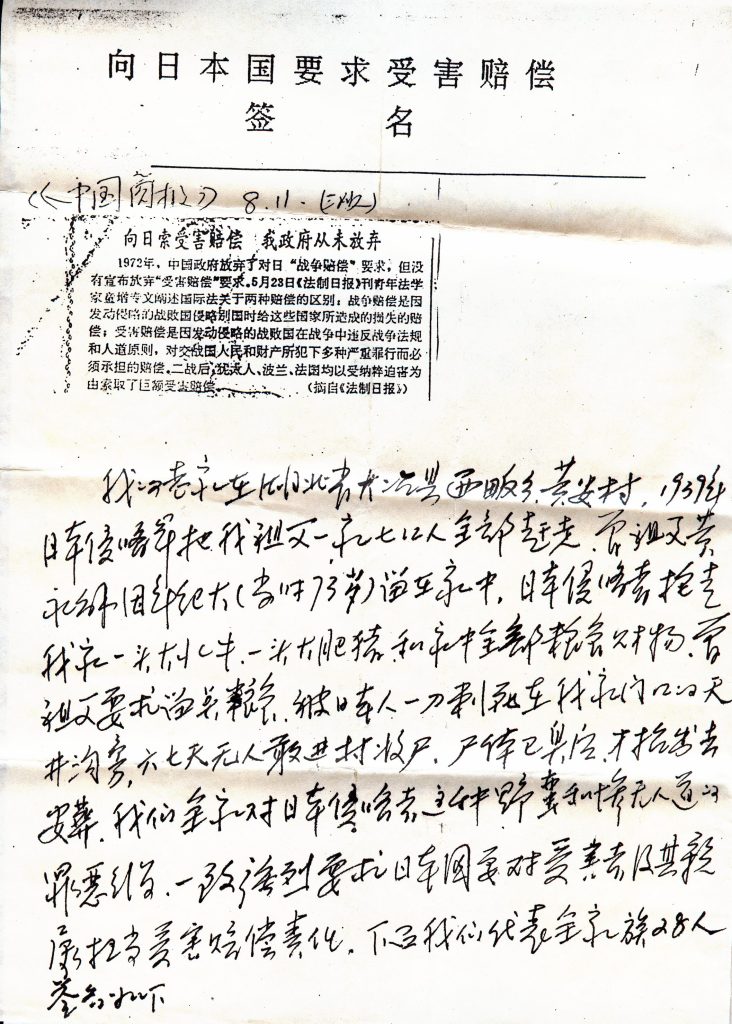 向日本国要求受害赔偿
签 名
《中国商报》 8.11.(三版)
向日索受害赔偿 我政府从未放弃
1972年，中国政府放弃了对日“战争赔偿”要求，但没
有宣布放弃“受害赔偿”要求。5月23日《法制日报》刊青年法学
家童增专文阐述国际法关于两种赔偿的区别：战争赔偿是因
发动侵略的战败国侵略别国时给这些国家所造成的损失的赔
偿；受害赔偿是因发动侵略的战败国在战争中违反战争法规
和人道原则，对交战国人民和财产所犯下多种严重罪行而必
须承担的赔偿。二战后，犹太人、波兰、法国均以受纳粹迫害为
由索取了巨额受害赔偿。 （摘自《法制日报》）
我的老家在湖北省大冶县西畈乡黄安村，1939年
日本侵略军把我祖父一家七口人全部赶走，曾祖父黄
因年纪大（当时73岁）留在家中，日本侵略者抢走
我家一头大水牛、一头大肥猪和家中全部粮食财物，曾
祖父要求留点粮食，被日本人一刀刺死在我家门口的天
井沟旁，六七天无人敢进村收尸，尸体已臭后，才抬出去
安葬。我们全家对日本侵略者这种野蛮和惨无人道的
罪恶行为，一致强烈要求日本国要对受害者及其亲
属担当受害赔偿责任，下面我们代表全家族28人
签名如下